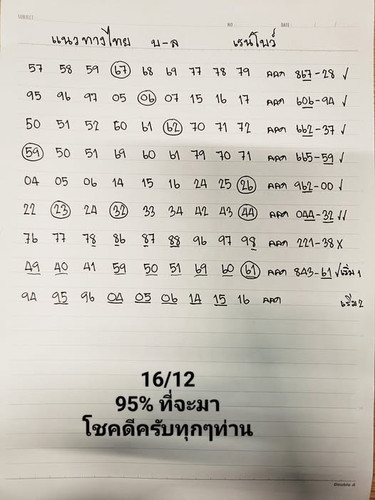 SUBJECT NO. DATE
แนวทางไทย บ-ล เรนโบว์
57 58 59 67 68 69 77 78 79 ออก 867-28 ✓
95 96 97 05 06 07 15 16 17 ออก 606-94 ✓
50 51 52 60 61 62 70 71 72 ออก 662-37 ✓
59 50 51 69 60 61 79 70 71 ออก 665-59 ✓
04 05 06 14 15 16 24 25 26 ออก 962-00 ✓
22 23 24 32 33 34 42 43 44 ออก 044-32 ✓✓
76 77 78 86 87 88 96 97 98 ออก 221-38 X
49 40 41 59 50 51 69 60 61 ออก 843-61 ✓ เริ่ม 1
94 95 96 04 05 06 14 15 16 ออก เริ่ม 2
16/12
95% ที่จะมา
โชคดีครับทุกๆท่าน